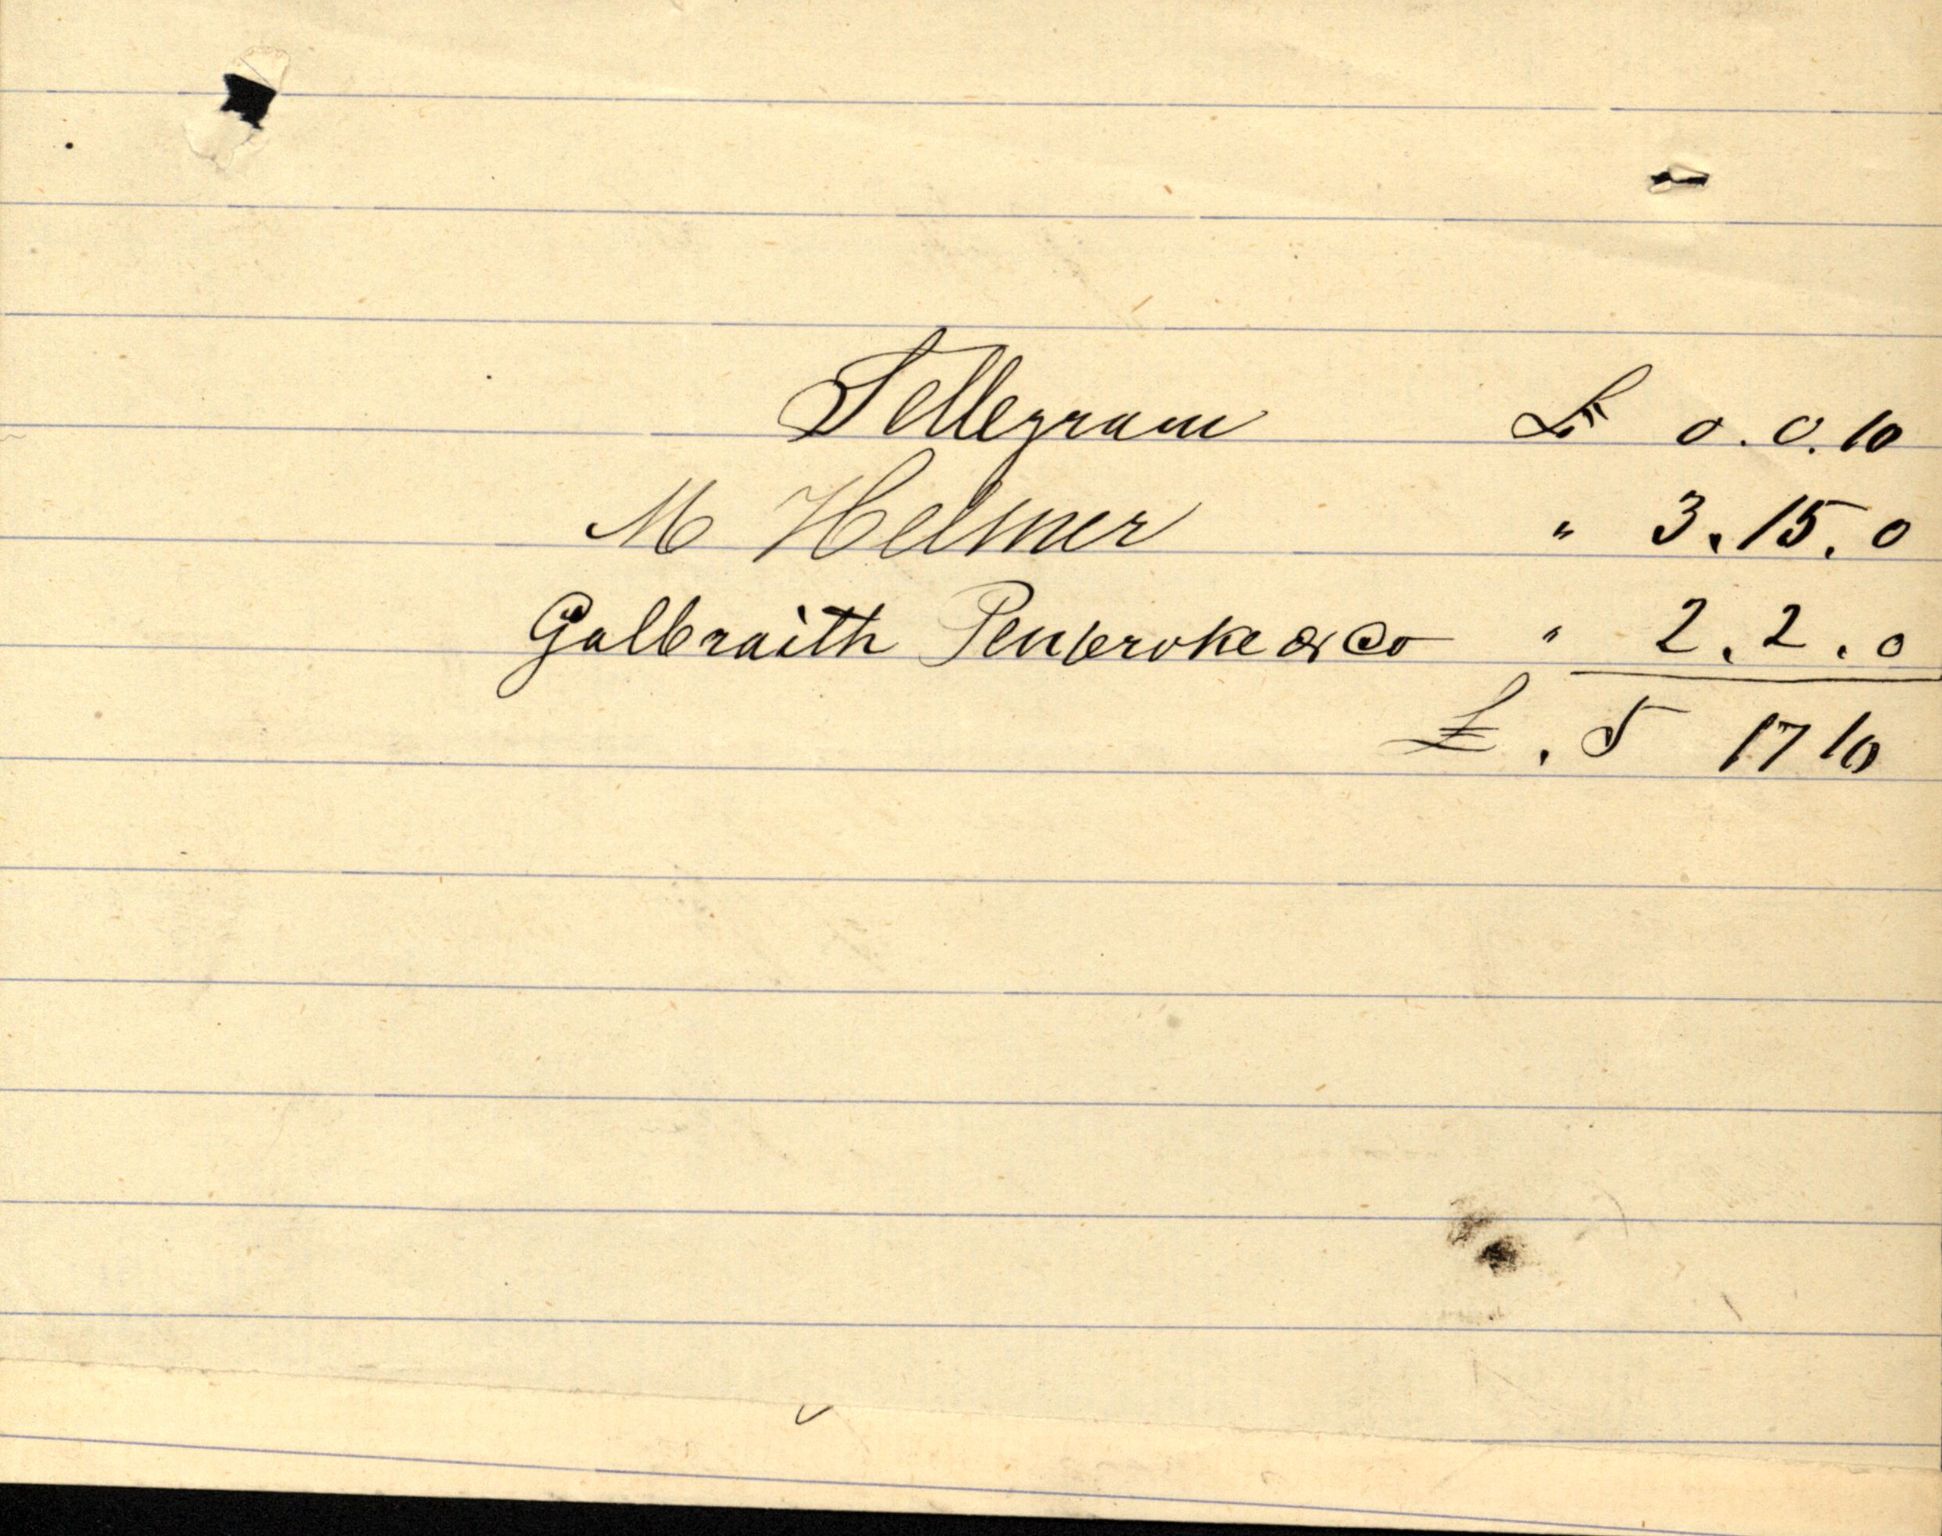 Tellegram £ 0.0.10
M Helmer " 3.15.0
Galbraith Penbroke & Co " 2.2.0
£. 5 17 10